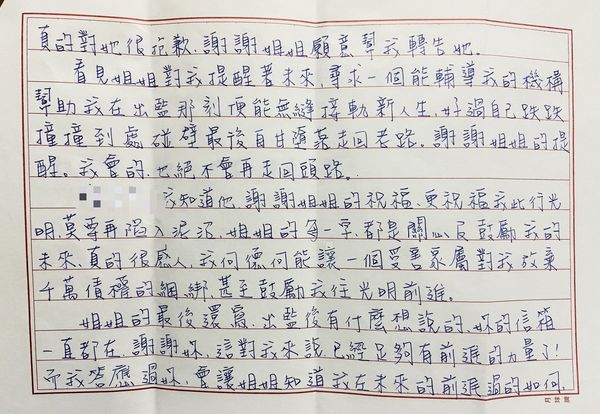 真的對她很抱歉.謝謝姐姐願意幫我轉告她。
看見姐姐對我提醒著未來,尋求一個能輔導我的機構
幫助我在出監那刻便能無縫接動新人生,好過自己跌跌
撞撞到處碰壁最後自甘墮落走回老路。謝謝姐姐的提
醒。我會的,也絕不會再走回頭路。
我知道他,謝謝姐姐的祝福,更祝福我此行光
明,莫再陷入泥沼,姐姐的每一字,都是關心及鼓勵我的
未來,真的很感人,我何德何能讓一個受害家屬對我放棄
千萬債務的綑綁,甚至鼓勵我往光明前進。
姐姐的最後還寫,出監後有什麼想說的,妳的信箱
一直都在,謝謝妳,這對我來說,已經足夠有前進的力量了!
而我答應過妳,會讓姐姐知道我在未來的前進過的如何,